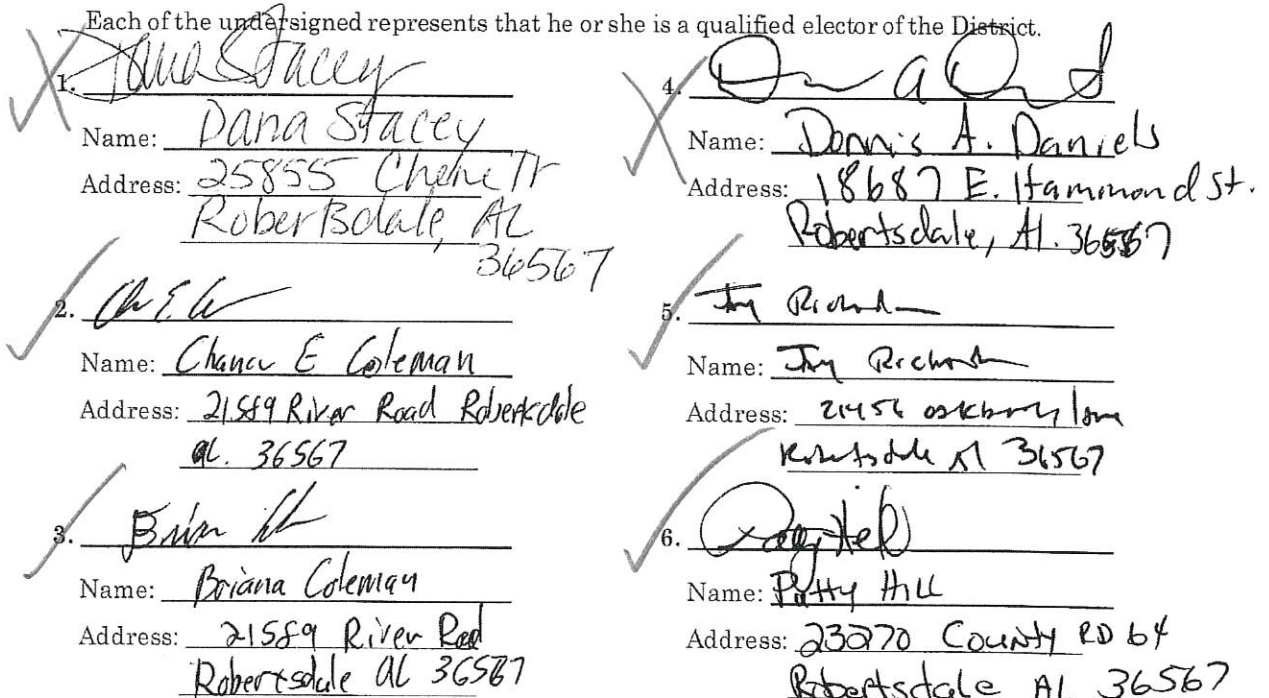 Each of the undersigned represents that he or she is a qualified elector of the District.
1. Dana Stacey
Name: Dana Stacey
Address: 25855 Tr
Robertsdale, AL
36567
2.
Name: Chance E Coleman
Address: 21589 River Road Robertsdale
al. 36567
3.
Name: Briana Coleman
Address: 21589 River Road
Robertsdale al 36567
4.
Name: Dennis A. Daniels
Address: 18687 E. Hammond St.
Robertsdale, Al. 36567
5.
Name:
Address: 21456
Robertsdale Al 36567
6.
Name: Patty Hill
Address: 23270 County RD 64
Robertsdale AL 36567